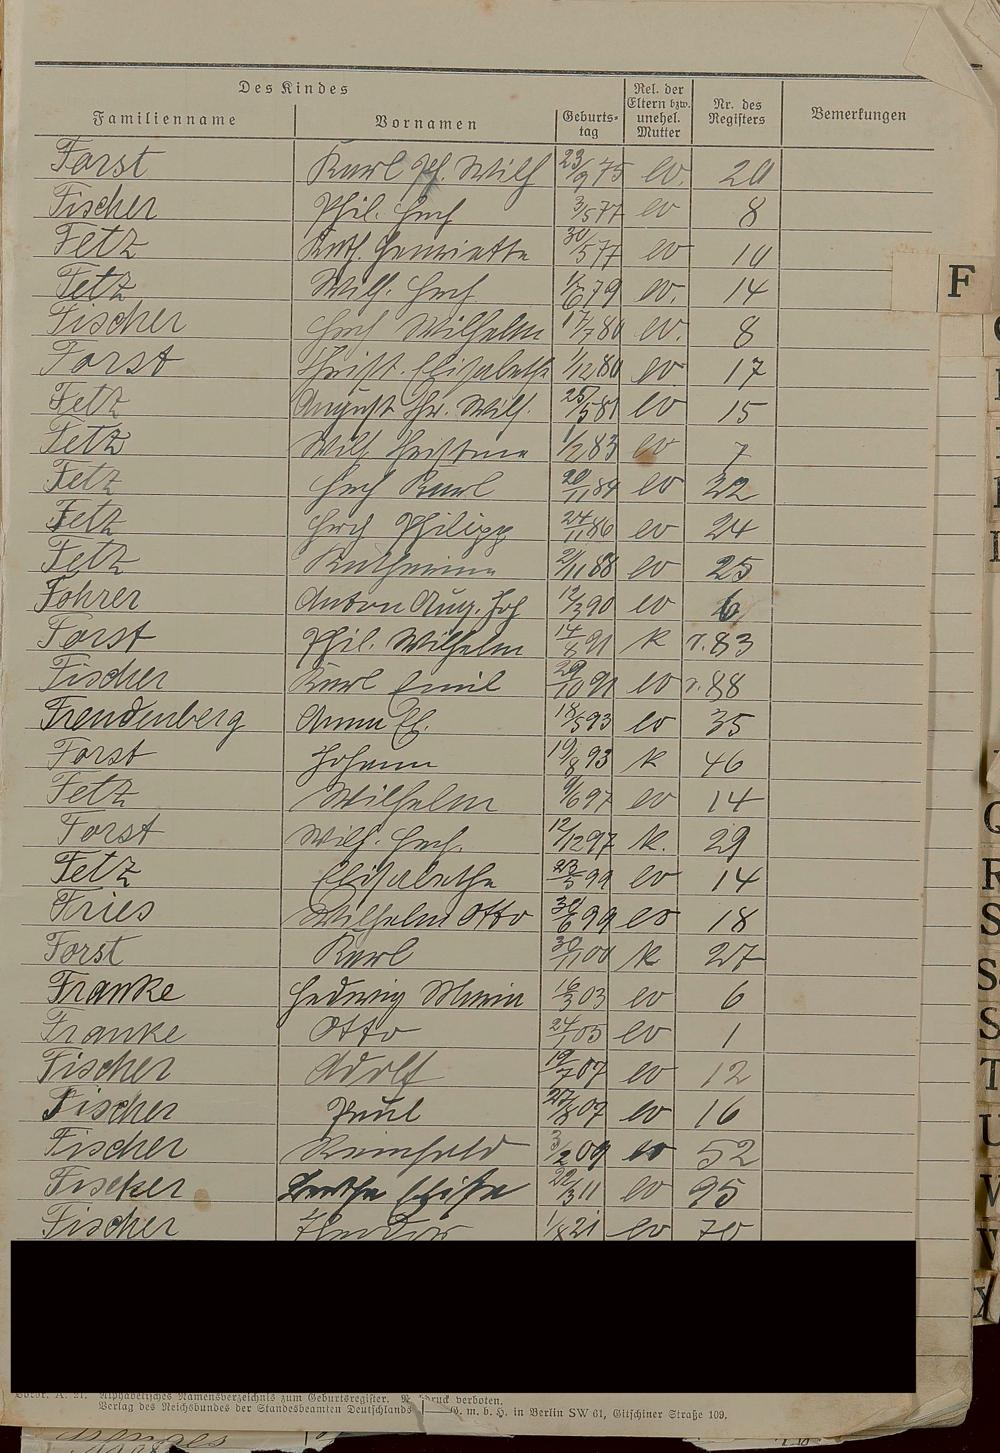 Des Kindes
Familienname Vornamen Geburts-tag Rel. der Eltern bzw. unehel. Mutter Nr. des Registers Bemerkungen
Forst Karl Ph. Wilh 23/9 75 ev. 20
Fischer Phil. Hch 3/5 77 ev 8
Fetz Kath. Henriette 30/5 77 ev 10
Fetz Wilh. Hch 6 79 ev. 14
F
Fischer Hch Wilhelm 17/7 80 ev. 8
Forst Christ. Elisabethe 1/12 80 ev. 17
Fetz August Chr. Wilh. 25/5 81 ev 15
Fetz Wilh Christine 1/2 83 ev 7
Fetz Hch Karl 20/11 84 ev 22
Fetz Hch Philipp 24/11 86 ev 24
Fetz Katharina 2/11 88 ev 25
Fohrer Anton Aug. Joh 12/3 90 ev 6
Forst Phil. Wilhelm 14/8 91 k r. 83
Fischer Karl Emil 29/10 91 ev r. 88
Freudenberg Anna El. 18/5 93 ev 35
Forst Johann 19/8 93 k 46
Fetz Wilhelm 9/6 97 ev 14
Forst Wilh. Hch. 12/12 97 k. 29
Fetz Elisabetha 23/5 99 ev 14
Fries Wilhelm Otto 30/6 99 ev 18
Forst Karl 30/11 00 k 27
Franke Hedwig Maria 16/3 03 ev 6
Franke Otto 24/1 05 ev 1
Fischer Adolf 19/7 07 ev 12
Fischer Paul 27/8 07 ev 16
Fischer Reinhold 3/2 09 ev 52
Fischer Bertha Elise 22/3 11 ev 95
Fischer Theodor 21 ev 70
Vordr. A. 21. Alphabetisches Namensverzeichnis zum Geburtsregister. druck verboten.
Verlag des Reichsbundes der Standesbeamten Deutschlands G. m. b. H. in Berlin SW 61, Gitschiner Straße 109.